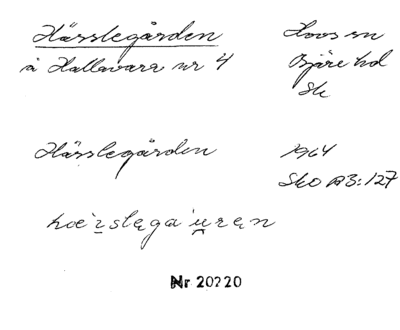 Hässlegården
å Hallavara nr 4
Hovs sn
Bjäre hd
Sk
Hässlegården
1964
Sko B3:127
Nr 20220